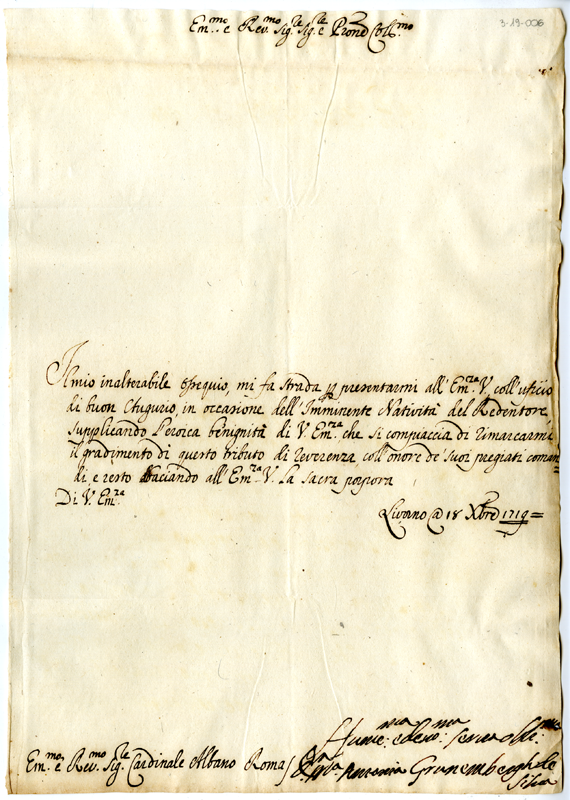 3-19-006
Em.mo e Rev.mo Sig.le Sig.le e Prone Coll.mo
Il mio inalterabile ossequio, mi fa strada p presentarmi all'Em.za V. coll'uficio
di buon Augurio, in occasione dell'Imminente Natività del Redentore,
supplicando l'eroica benignità di V. Em.za che si compiaccia di rimarcarmi
il gradimento di questo tributo di reverenza, coll'onore de' suoi pregiati coman=
di, e resto baciando all'Em.za V. la sacra porpora
Di V. Em.za
Livorno @ 18 Xbre 1719=
Hum.ma e Dev.ma Serva obb.ma
Em.mo e Rev.mo Sig.le Cardinale Albano Roma
Antonia Grunembergh de
Silva